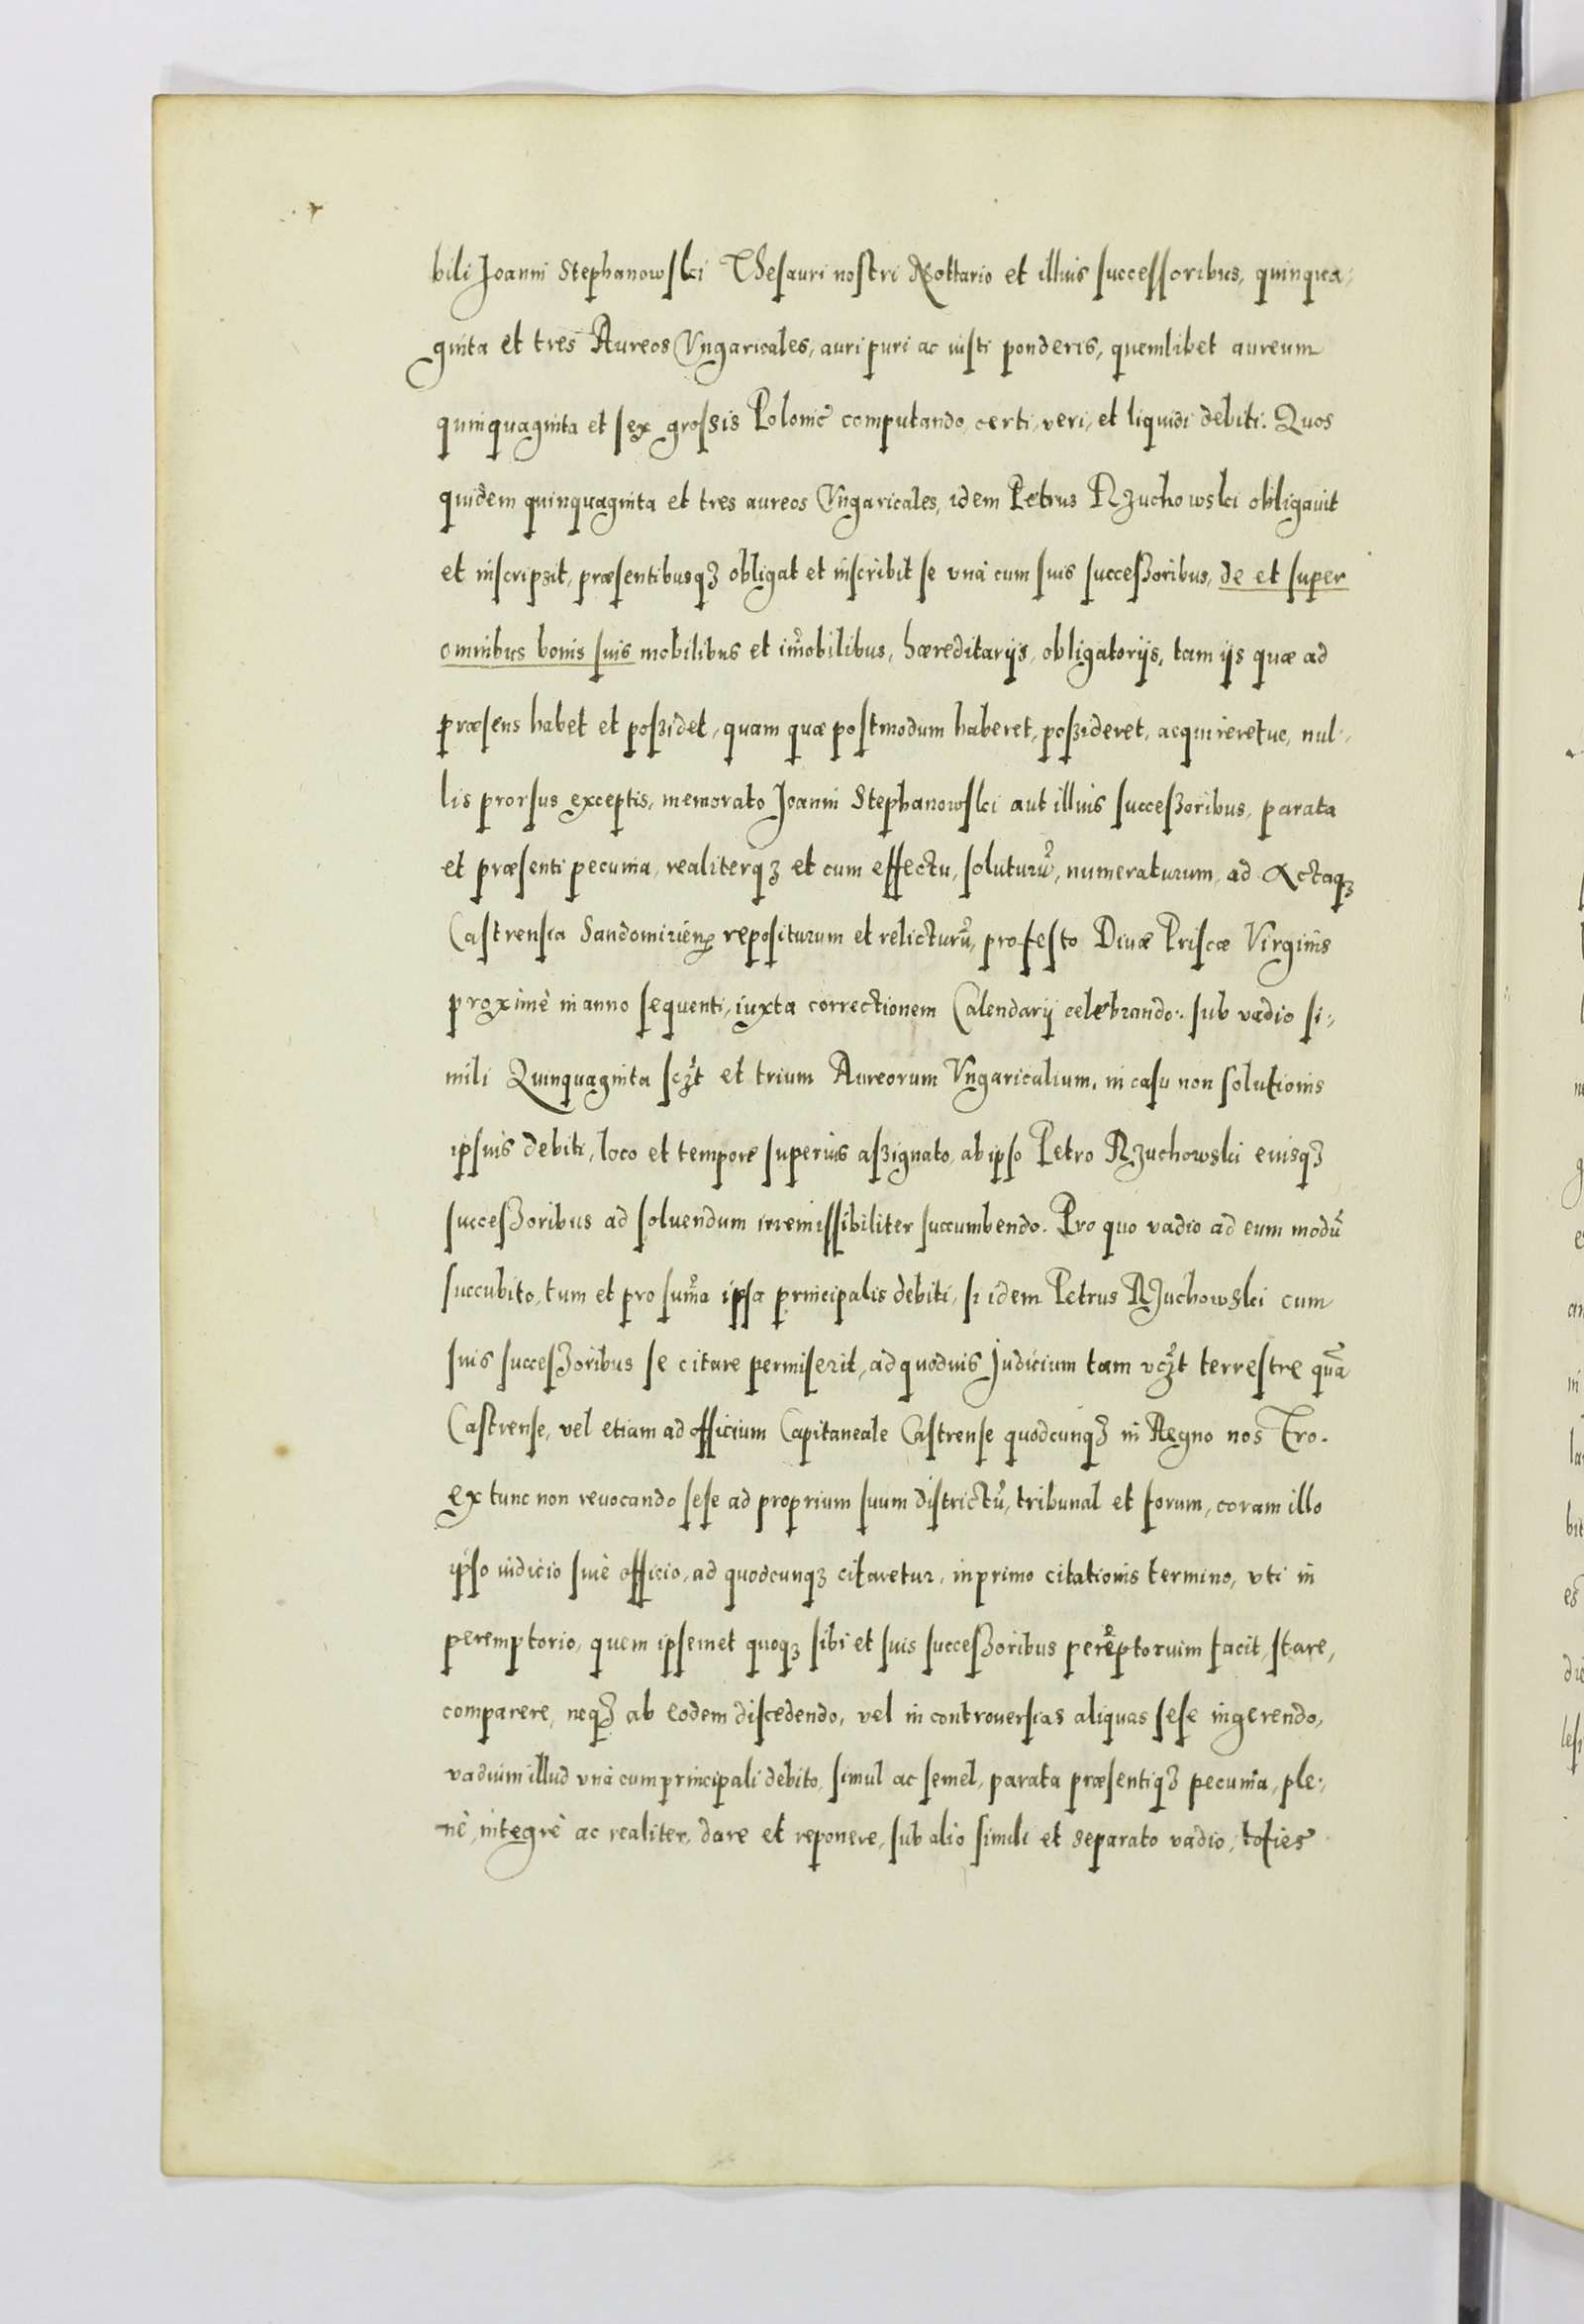 bili Joanni Stephanowski Thesauri nostri Nottario et illius successoribus, quinqua-
ginta et tres Aureos Vngaricales, auri puri ac iusti ponderis, quemlibet aureum
quinquaginta et sex grossis Polonic̃ computando, certi, veri, et liquidi debiti. Quos
quidem quinquaginta et tres aureos Vngaricales, idem Petrus Rzuchowski obligauit
et inscripsit, præsentibusq₃ obligat et inscribit se vnà cum suis successoribus, de et super
omnibus bonis suis mobilibus et im̃obilibus, hæreditarijs, obligatorijs, tam ijs quæ ad
præsens habet et possidet, quam quæ postmodum haberet, possideret, acquireretue, nul-
lis prorsus exceptis, memorato Joanni Stephanowski aut illius successoribus, parata
et præsenti pecunia, realiterq₃ et cum effectu, soluturũ, numeraturum, ad Actaq₃
Castrensia Sandomirien̄ repositurum et relicturũ, pro festo Diuæ Priscæ Virginis
proximè in anno sequenti, iuxta correctionem Calendarij celebrando. sub vadio si-
mili Quinquaginta scz̃t et trium Aureorum Vngaricalium, in casu non solutionis
ipsius debiti, loco et tempore superius assignato, ab ipso Petro Rzuchowski eiusq₃
successoribus ad soluendum irremissibiliter succumbendo. Pro quo vadio ad eum modũ
succubito, tum et pro sum̃a ipsa principalis debiti, si idem Petrus Rzuchowski cum
suis successoribus se citare permiserit, ad quoduis Judicium tam vcz̃t terrestre quã
Castrense, vel etiam ad officium Capitaneale Castrense quodcunq₃ in Regno nostro.
ex tunc non reuocando sese ad proprium suum districtũ, tribunal et forum, coram illo
ipso iudicio siuè officio, ad quodcunq₃ citaretur, in primo citationis termino, vti in
peremptorio, quem ipsemet quoq₃ sibi et suis successoribus perẽptorium facit, stare,
comparere, neq₃ ab eodem discedendo, vel in controuersias aliquas sese ingerendo,
vadium illud vnà cum principali debito, simul ac semel, parata præsentiq₃ pecunia, ple-
nè, integrè ac realiter, dare et reponere, sub alio simili et separato vadio, toties